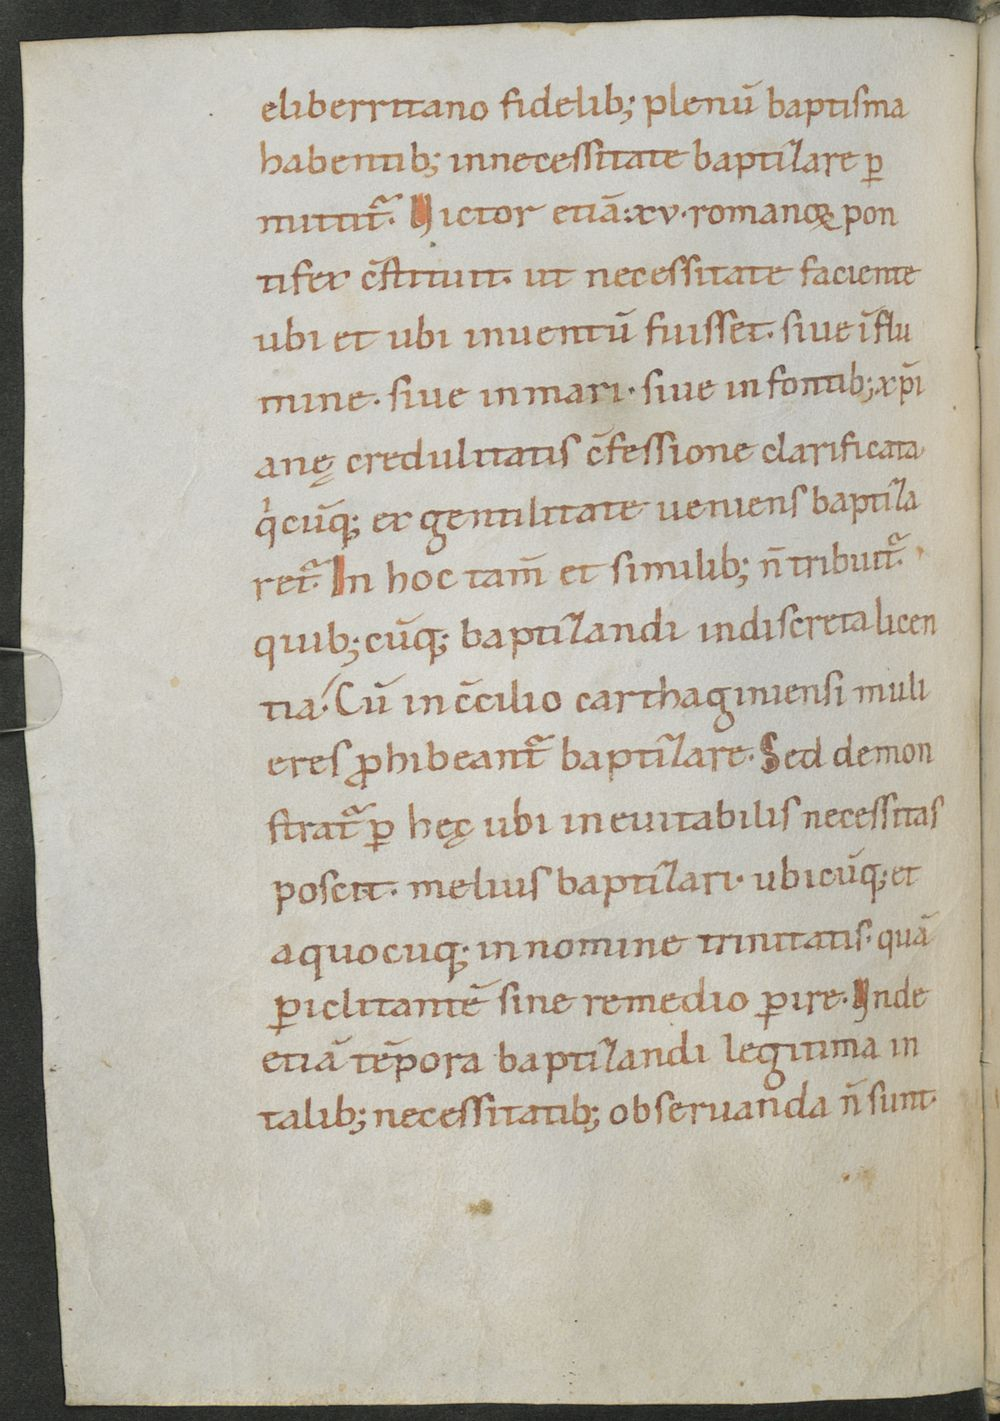 eliberritano fidelib; plenū baptisma
habentib; in necessitate baptizare ꝑ
mittit᷑. Victor etiā .xv. romanoꝝ pon
tifex c̄stituit. ut necessitate faciente
ubi et ubi inventū fuisset. siue ī flu
mine. siue in mari. siue in fontib; xp̄i
anę credulitatis c̄fessione clarificata
qͥcūq; ex gentilitate ueniens baptiza
ret᷑. In hoc tam̄ et similib; n̄ tribuit᷑
quib;cūq; baptizandi indiscreta licen
tia. Cū in c̄cilio carthaginiensi muli
eres ꝓhibeant᷑ baptizare. Sed demon
strat᷑ ꝑ hęc ubi ineuitabilis necessitas
poscit. melius baptizari. ubicūq; et
a quocuq; in nomine trinitatis. quā
ꝑiclitantē sine remedio ꝑire. Unde
etiā tēpora baptizandi legitima in
talib; necessitatib; obseruanda n̄ sunt.